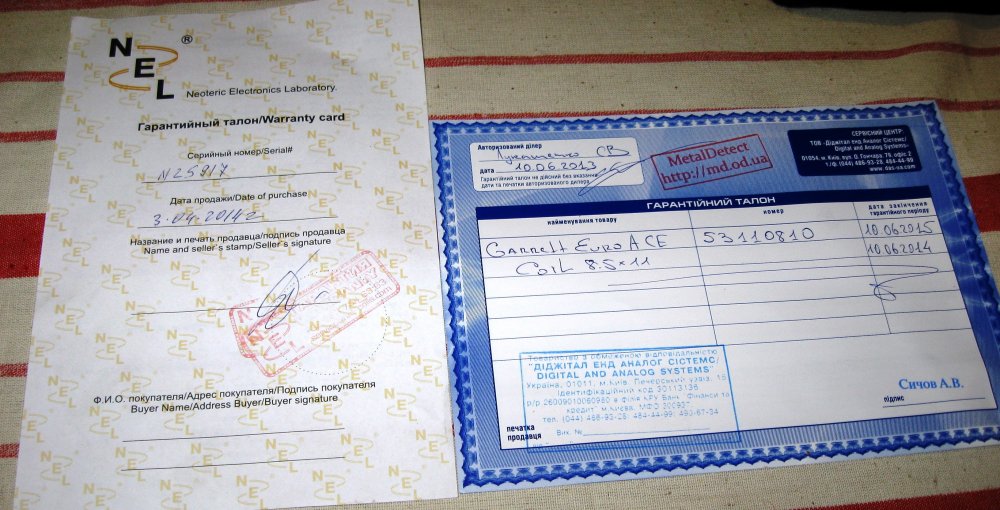 NEL ®
Neoteric Electronics Laboratory.
Гарантийный талон/Warranty card
Серийный номер/Serial#
N25817
Дата продажи/Date of purchase
3.04.2014г
Название и печать продавца/подпись продавца
Name and seller`s stamp/Seller`s signature
NEL
Ф.И.О. покупателя/Адрес покупателя/Подпись покупателя
Buyer Name/Address Buyer/Buyer signature
Авторизований ділер
Лукашенко СВ
дата 10.06.2013
Гарантійний талон на дійсний без вказання
дати та печатки авторизованого дилера
MetalDetect
http://md.od.ua
СЕРВІСНИЙ ЦЕНТР:
ТОВ «Діджітал Енд Аналог Сістемс/
Digital and Analog Systems»
01054, м. Київ, вул. О. Гончара 79, офіс 2
т/ф. (044) 486-93-28 484-44-99
www.das-ua.com
ГАРАНТІЙНИЙ ТАЛОН
найменування товару
номер
дата закінчення
гарантійного періоду
Garrett Euro ACE 53110810 10.06.2015
Coil 8.5×11 10.06.2014
Товариство з обмеженою відповідальністю
"ДІДЖІТАЛ ЕНД АНАЛОГ СІСТЕМС/
DIGITAL AND ANALOG SYSTEMS"
Україна, 01011, м.Київ, Печерський узвіз, 15
Ідентифікаційний код 30113136
р/р 26009010060980 в Філія КРУ Банк "Фінанси та
кредит" м.Києва, МФО
тел. (044) 486-93-28; 484-44-99; 490-67-34
Вих. №
печатка
продавця
Сичов А.В.
підпис